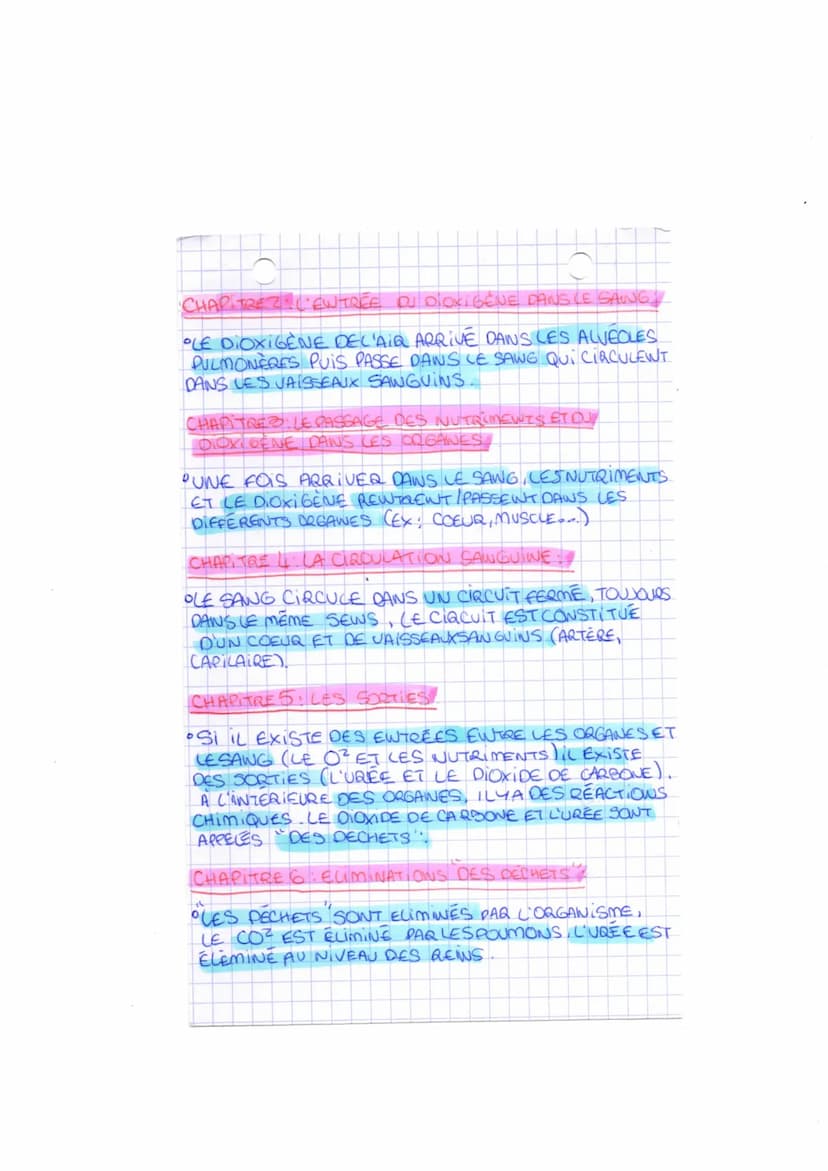 CHAPITRE 2 : L'ENTRÉE DU DIOXIGÈNE DANS LE SANG
°LE DIOXIGÈNE DE L'AIR ARRIVÉ DANS LES ALVÉOLES
PULMONÈRES PUIS PASSE DANS LE SANG QUI CIRCULENT
DANS LES VAISSEAUX SANGUINS.
CHAPITRE 3 : LE PASSAGE DES NUTRIMENTS ET DU
DIOXIGÈNE DANS LES ORGANES
°UNE FOIS ARRIVER DANS LE SANG, LES NUTRIMENTS
ET LE DIOXIGÈNE RENTRENT/PASSENT DANS LES
DIFFÉRENTS ORGANES (EX: COEUR, MUSCLE...)
CHAPITRE 4 : LA CIRCULATION SANGUINE :
°LE SANG CIRCULE DANS UN CIRCUIT FERMÉ, TOUJOURS
DANS LE MÊME SENS, LE CIRCUIT EST CONSTITUÉ
D'UN COEUR ET DE VAISSEAUX SANGUINS (ARTÈRE,
CAPILAIRE).
CHAPITRE 5 : LES SORTIES
°SI IL EXISTE DES ENTRÉES ENTRE LES ORGANES ET
LE SANG (LE O² ET LES NUTRIMENTS) IL EXISTE
DES SORTIES (L'URÉE ET LE DIOXIDE DE CARBONE).
À L'INTÉRIEURE DES ORGANES, IL Y A DES RÉACTIONS
CHIMIQUES. LE DIOXIDE DE CARBONE ET L'URÉE SONT
APPELÉS "DES DECHETS".
CHAPITRE 6 : ELIMINATIONS "DES DÉCHETS"
°"LES DÉCHETS" SONT ELIMINÉS PAR L'ORGANISME,
LE CO² EST ÉLIMINÉ PAR LES POUMONS, L'URÉE EST
ÉLÉMINÉ AU NIVEAU DES REINS.